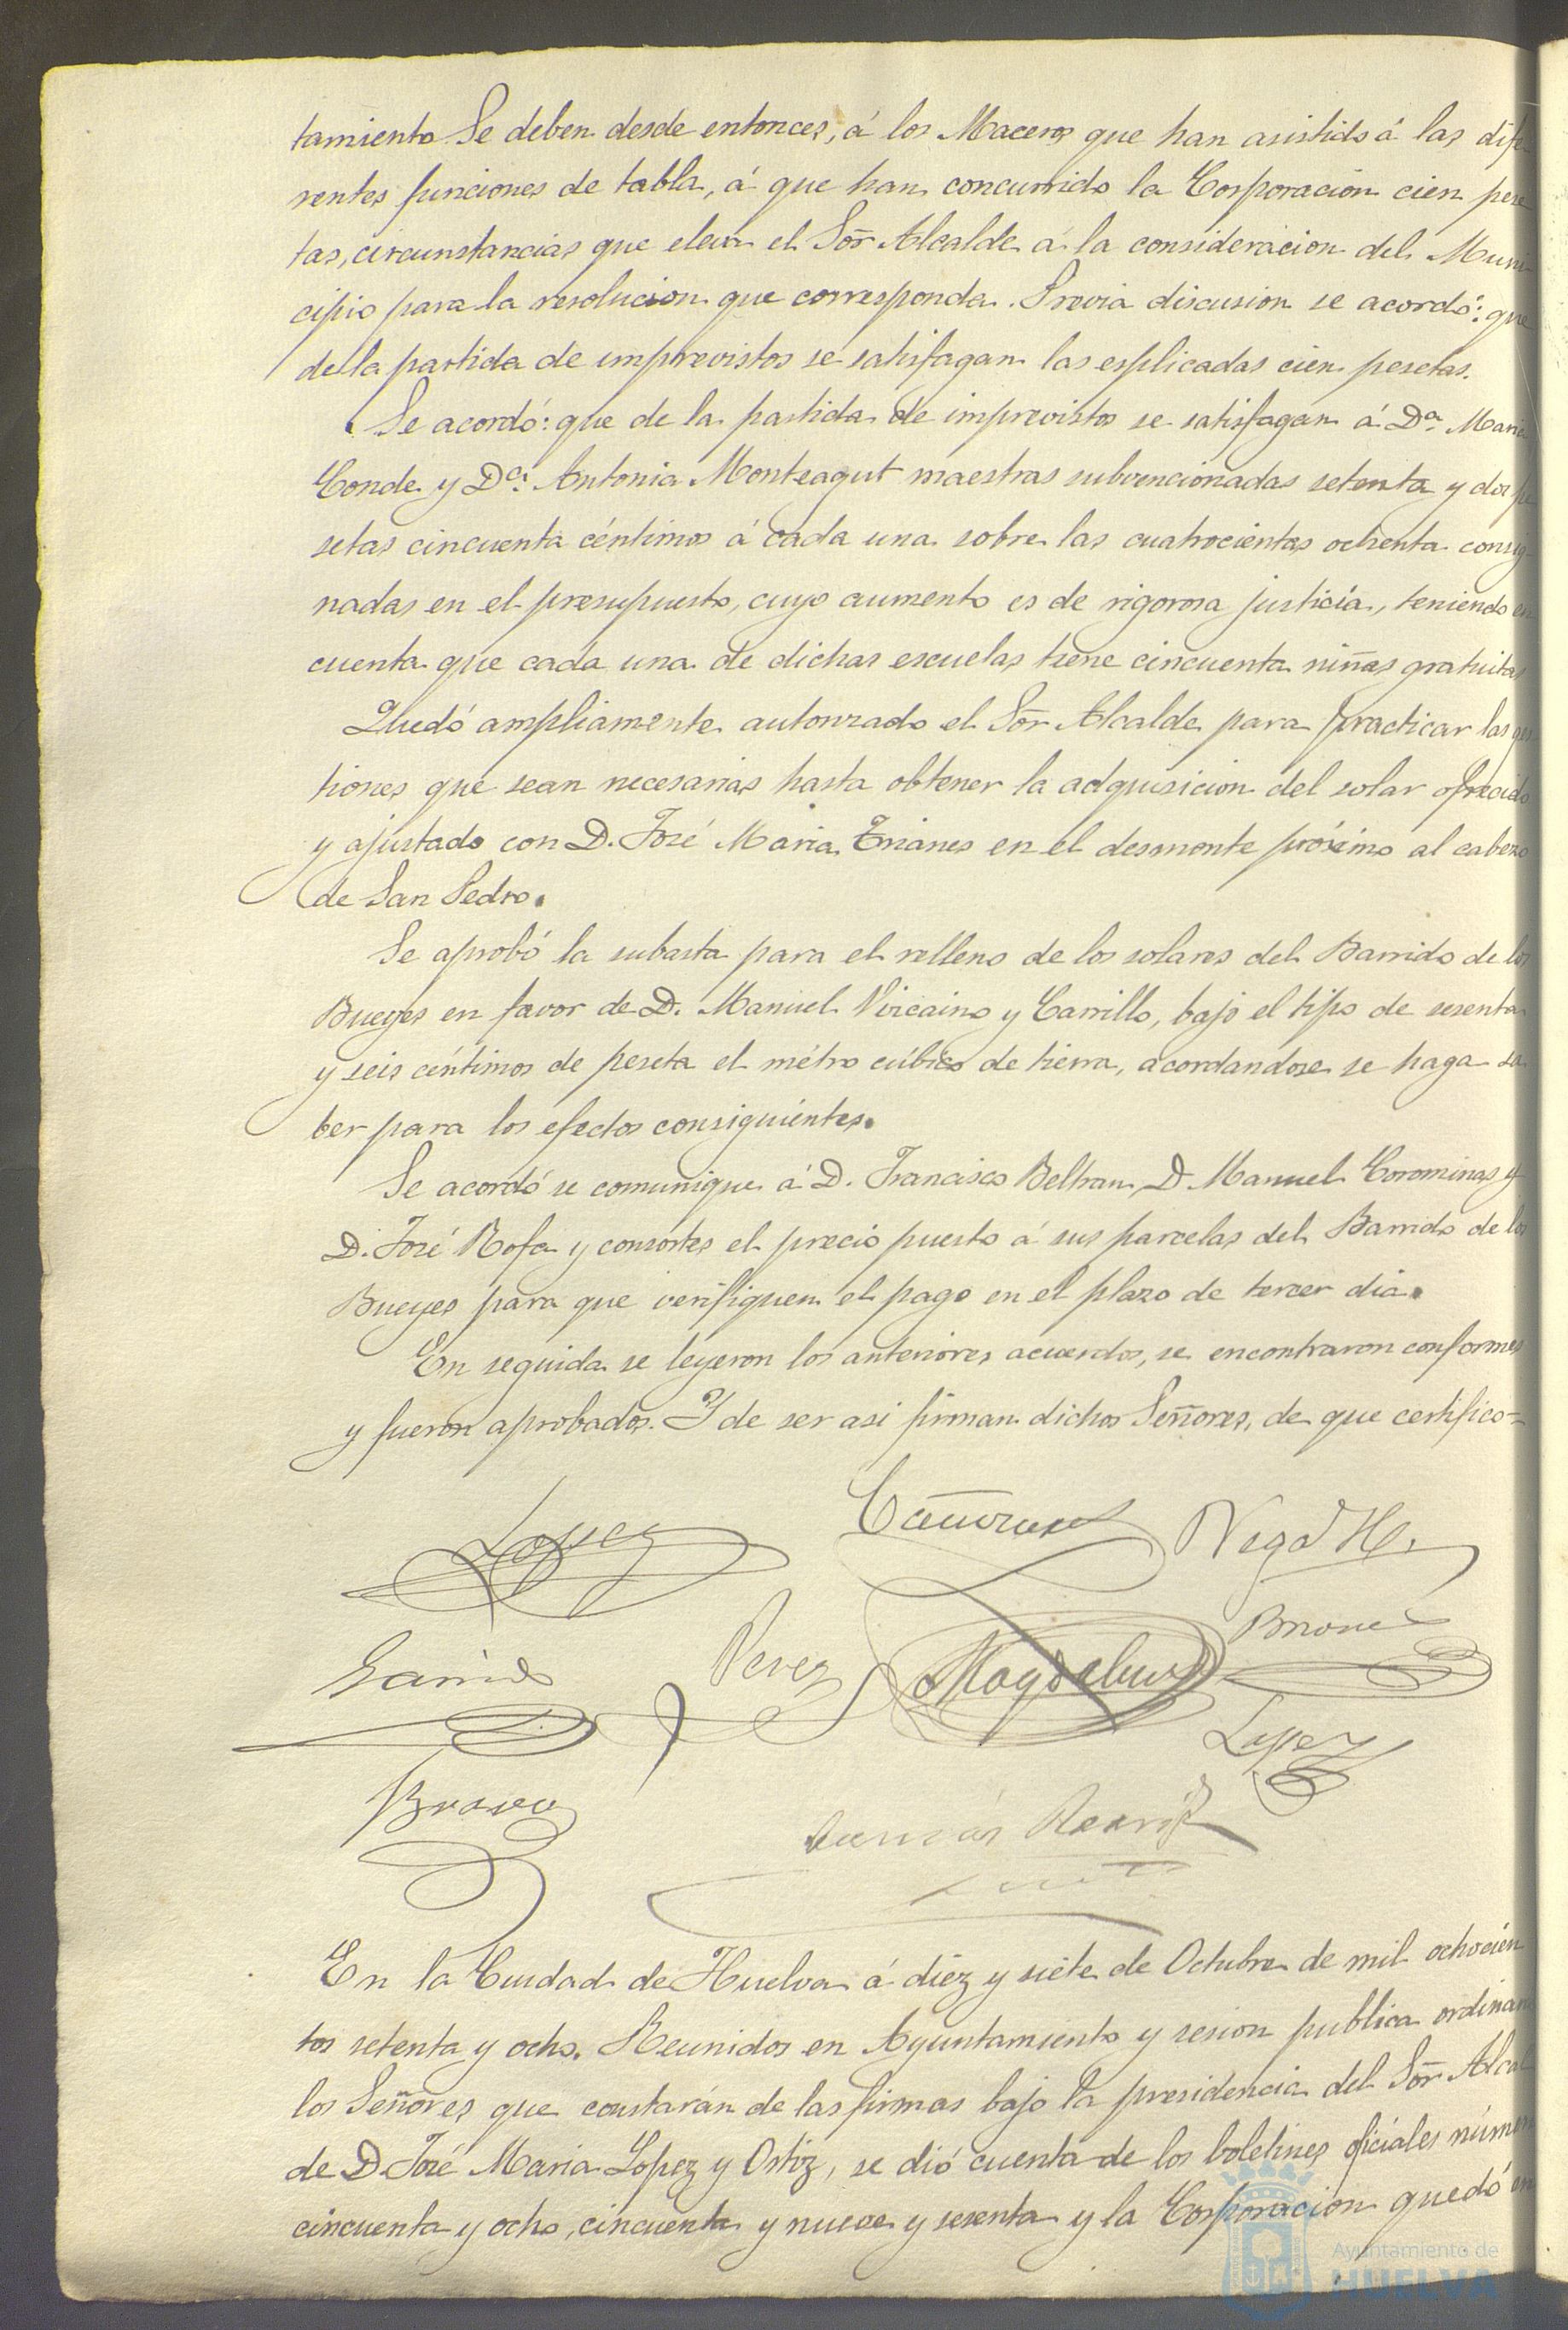 tamiento Se deben desde entonces, á los Maceros que han asistido á las dife
rentes funciones de tabla, á que han concurrido la Corporacion cien pese
tas, circunstancias que eleva el Sor Alcalde á la consideracion del Muni
cipio para la resolucion que corresponda. Previa discusion se acordó: que
de la partida de imprevistos se satisfagan las esplicadas cien pesetas.
Se acordó: que de la partida de imprevistos se satisfagan á Da. Maria
Conde y Da. Antonia Monteagut maestras subvencionadas setenta y dos pe
setas cincuenta céntimos á cada una sobre las cuatrocientas ochenta consig
nadas en el presupuesto, cuyo aumento es de rigorosa justicia, teniendo en
cuenta que cada una de dichas escuelas tiene cincuenta niñas gratuitas
Quedó ampliamente autorizado el Sor Alcalde para practicar las ges
tiones que sean necesarias hasta obtener la adquisicion del solar ofrecido
y ajustado con D. José Maria Trianes en el desmonte próximo al cabezo
de San Pedro.
Se aprobó la subasta para el relleno de los solares del Barrido de los
Bueyes en favor de D. Manuel Vizcaino y Carrillo, bajo el tipo de sesenta
y seis céntimos de peseta el métro cúbico de tierra, acordandose se haga sa
ber para los efectos consiguientes.
Se acordó se comunique á D. Francisco Beltran, D Manuel Corominas y
D. José Rofa y consortes el precio puesto á sus parcelas del Barrido de los
Bueyes para que verifiquen el pago en el plazo de tercer dia.
En seguida se leyeron los anteriores acuerdos, se encontraron conformes
y fueron aprobados. Y de ser asi firman dichos Señores, de que certifico=
Lopez
Vega H.
Garrido Perez Magdalena
Lopez
Bravo
En la Ciudad de Huelva á diez y siete de Octubre de mil ochocien
tos setenta y ocho. Reunidos en Ayuntamiento y sesion publica ordinaria
los Señores que constarán de las firmas bajo la presidencia del Sor Alcal
de D. José Maria Lopez y Ortiz, se dió cuenta de los boletines oficiales número
cincuenta y ocho, cincuenta y nueve y sesenta y la Corporacion quedó en
Ayuntamiento de
HUELVA